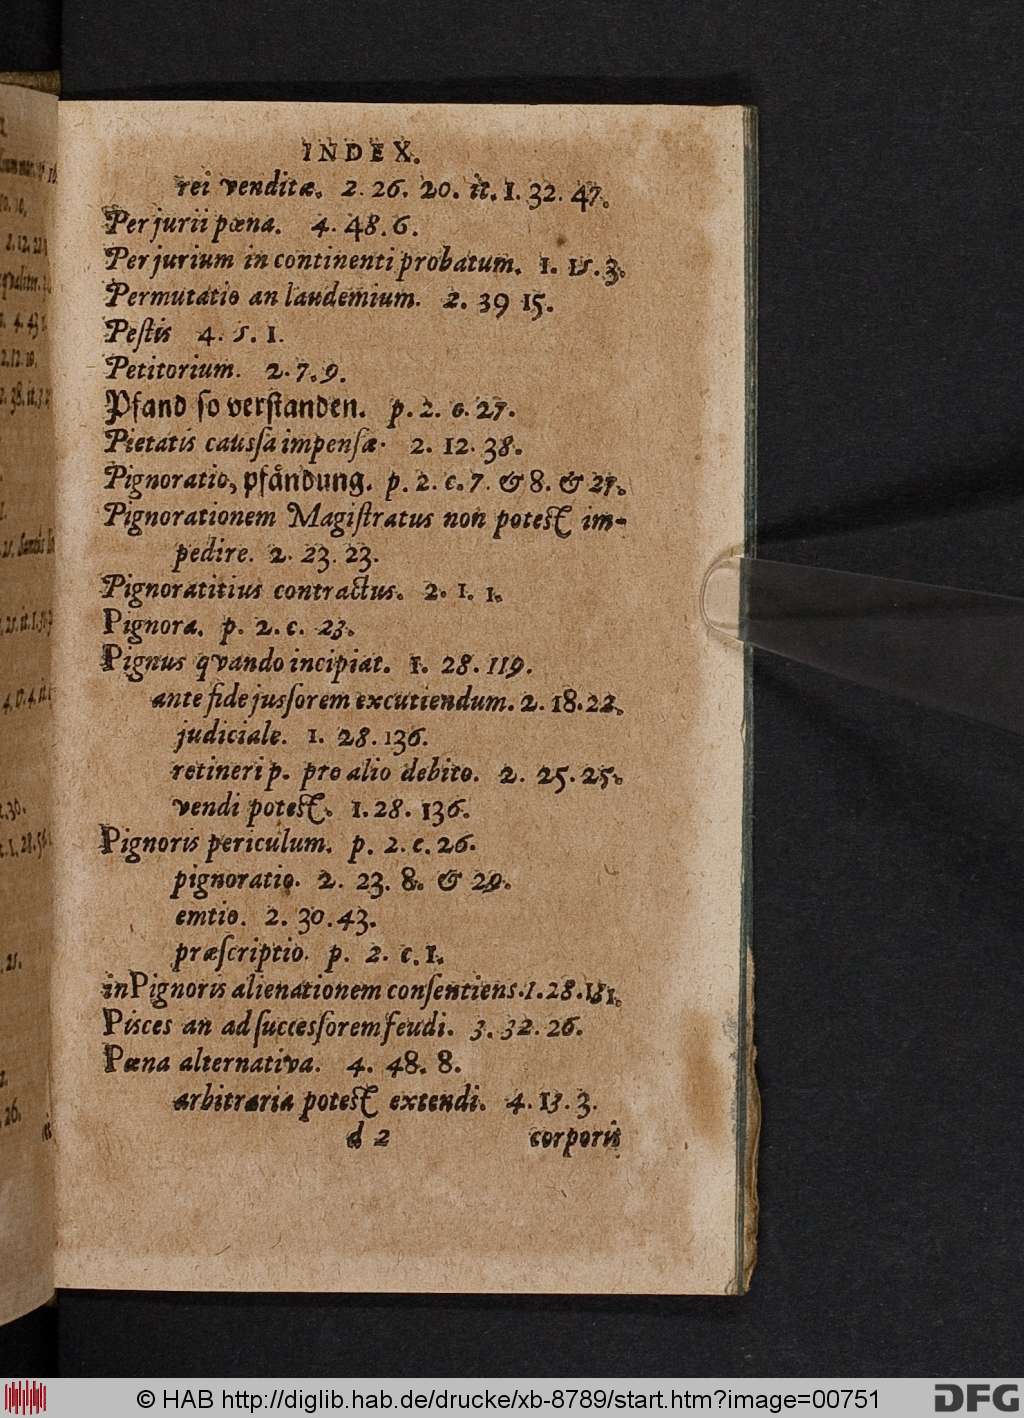 INDEX.
rei venditæ. 2. 26. 20. it. 1. 32. 47.
Perjurii pœna. 4. 48. 6.
Perjurium in continenti probatum. 1. 15. 3.
Permutatio an laudemium. 2. 39 15.
Peſtis 4. 5. 1.
Petitorium. 2. 7. 9.
Pfand ſo verſtanden. p. 2. c. 27.
Pietatis cauſſa impenſæ. 2. 12. 38.
Pignoratio, pfåndung. p. 2. c. 7. & 8. & 27.
Pignorationem Magiſtratus non poteſt im-
pedire. 2. 23. 23.
Pignoratitius contractus. 2. 1. 1.
Pignora. p. 2. c. 23.
Pignus qvando incipiat. 1. 28. 119.
ante fidejusſorem excutiendum. 2. 18. 22.
judiciale. 1. 28. 136.
retineri p. pro alio debito. 2. 25. 25.
vendi poteſt. 1. 28. 136.
Pignoris periculum. p. 2. c. 26.
pignoratio. 2. 23. 8. & 29.
emtio. 2. 30. 43.
præſcriptio. p. 2. c. 1.
in Pignoris alienationem conſentiens. 1. 28. 131.
Pisces an ad ſuccesſorem feudi. 3. 32. 26.
Pœna alternativa. 4. 48. 8.
arbitraria poteſt extendi. 4. 13. 3.
d 2 corporis
© HAB http://diglib.hab.de/drucke/xb-8789/start.htm?image=00751
DFG